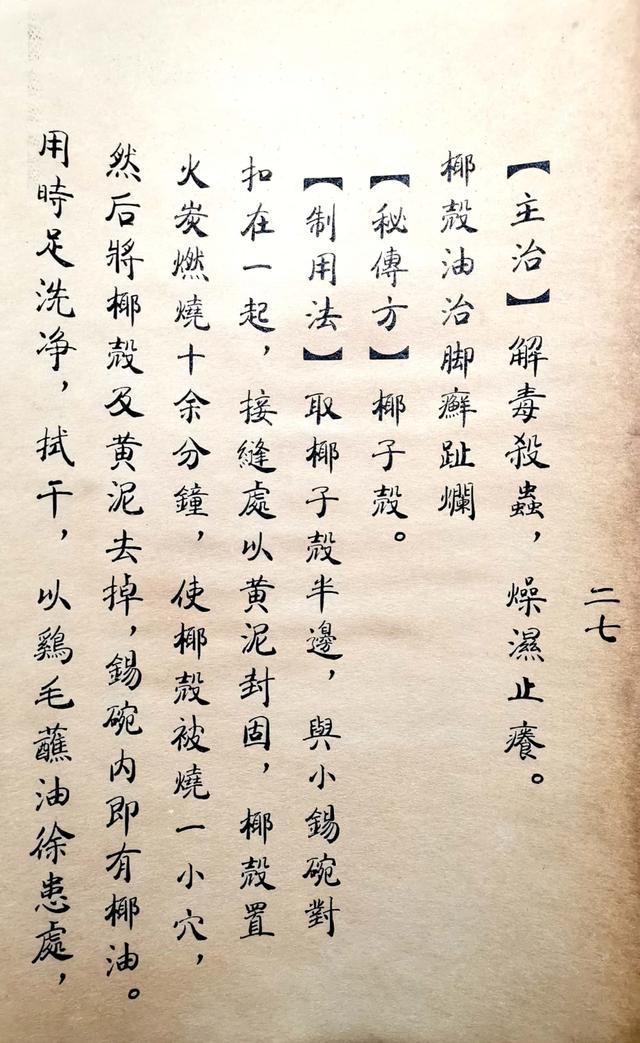 二七
【主治】解毒殺蟲，燥濕止癢。
椰殼油治脚癬趾爛
【秘傳方】椰子殼。
【制用法】取椰子殼半邊，與小錫碗對
扣在一起，接縫處以黄泥封固，椰殼置
火炭燃燒十余分鐘，使椰殼被燒一小穴，
然后將椰殼及黄泥去掉，錫碗内即有椰油。
用時足洗净，拭干，以鷄毛蘸油徐患處，